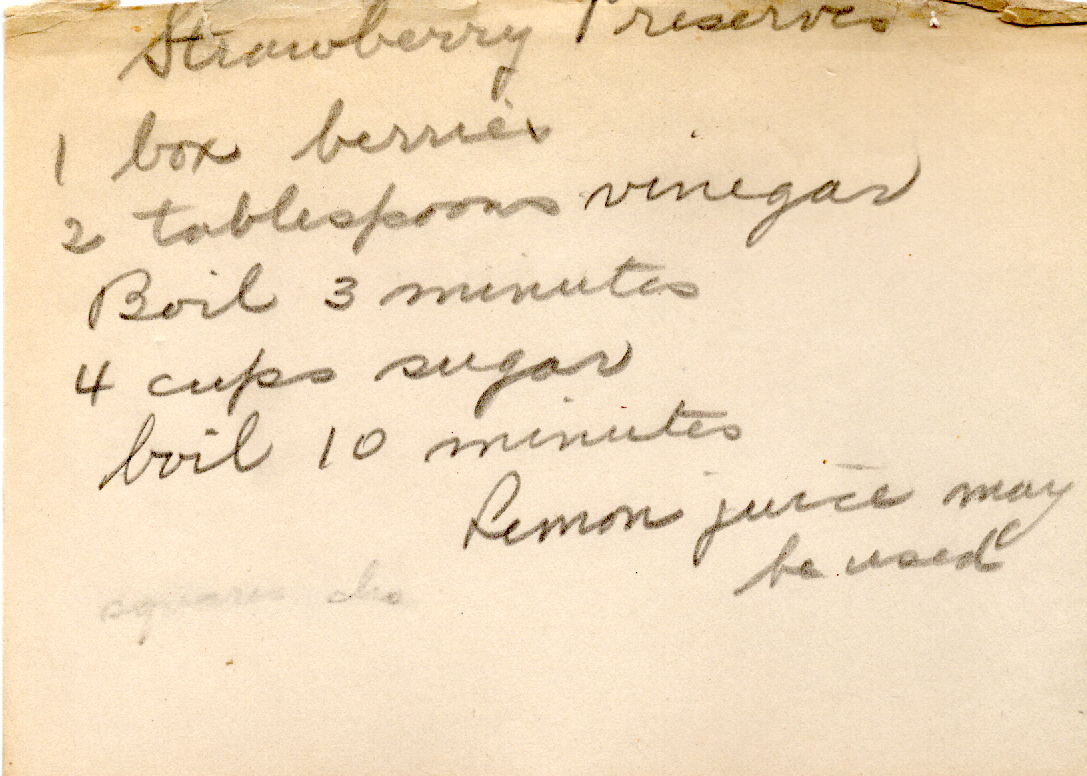 Strawberry Preserves
1 box berries
2 tablespoons vinegar
Boil 3 minutes
4 cups sugar
boil 10 minutes
Lemon juice may
be used
squares